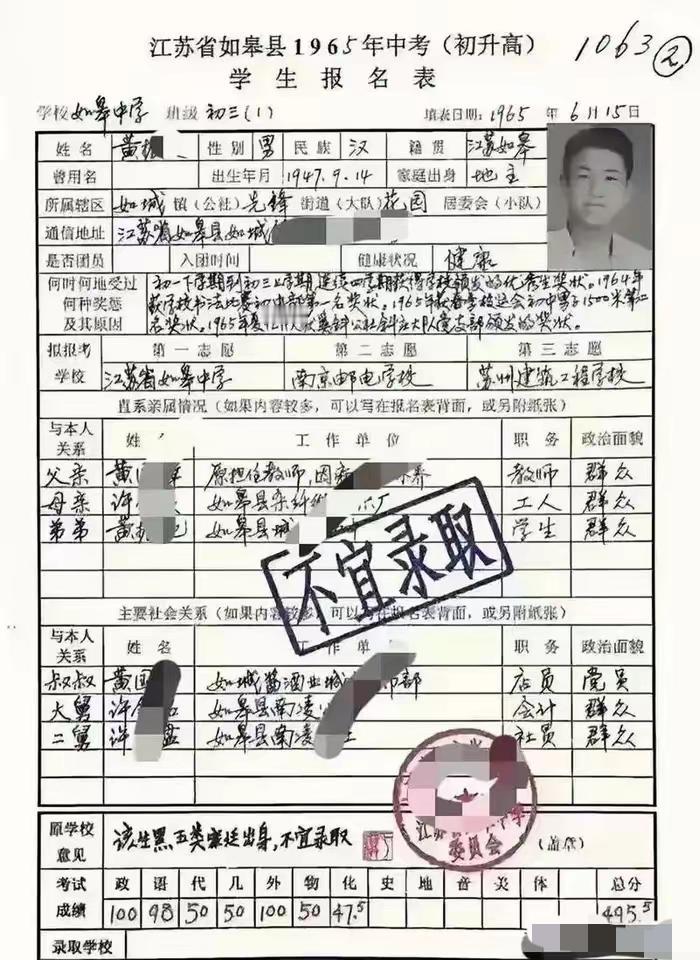 江苏省如皋县1965年中考（初升高） 1063 ②
学生报名表
学校 如皋中学 班级 初三(1) 填表日期：1965年6月15日
姓名 黄 性别 男 民族 汉 籍贯 江苏如皋
曾用名 出生年月 1947.9.14 家庭出身 地主
所属辖区 如城 镇（公社）先锋 街道（大队）花园 居委会（小队）
通信地址 江苏省如皋县如城
是否团员 入团时间 健康状况 健康
何时何地受过 初一下学期到初三上学期连续四学期获得学校颁发的优秀生奖状。1964年
何种奖惩 获学校书法比赛初中部第一名奖状。1965年获春季校运会初中男子1500米第二
及其原因 名奖状。1965年夏 公社 大队党支部颁发的奖状。
拟报考 第一志愿 第二志愿 第三志愿
学校 江苏省如皋中学 南京邮电学校 苏州建筑工程学校
直系亲属情况（如果内容较多，可以写在报名表背面，或另附纸张）
与本人关系 姓 工作单位 职务 政治面貌
父亲 黄 原担任教师，因 养 教师 群众
母亲 许 如皋县 厂 工人 群众
弟弟 黄 如皋县城 学生 群众
不宜录取
主要社会关系（如果内容较多，可以写在报名表背面，或另附纸张）
与本人关系 姓名 工作单位 职务 政治面貌
叔叔 黄国 如城酱酒业 部 店员 党员
大舅 许 如皋县南凌 会计 群众
二舅 许 如皋县南凌 社员 群众
江苏 中学
委员会
原学校意见 该生黑五类家庭出身，不宜录取 （盖信）
考试 政 语 代 几 外 物 化 史 地 音 美 体 总分
成绩 100 98 50 50 100 50 47.5 495.5
录取学校